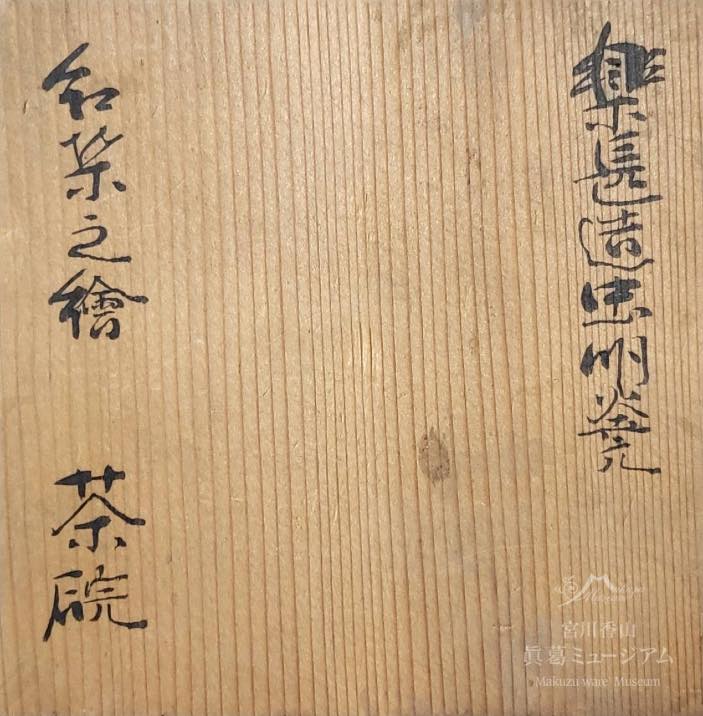 楽長造忠明釜元
紅葉之繪 茶碗
宮川香山
眞葛ミュージアム
Makuzu ware Museum